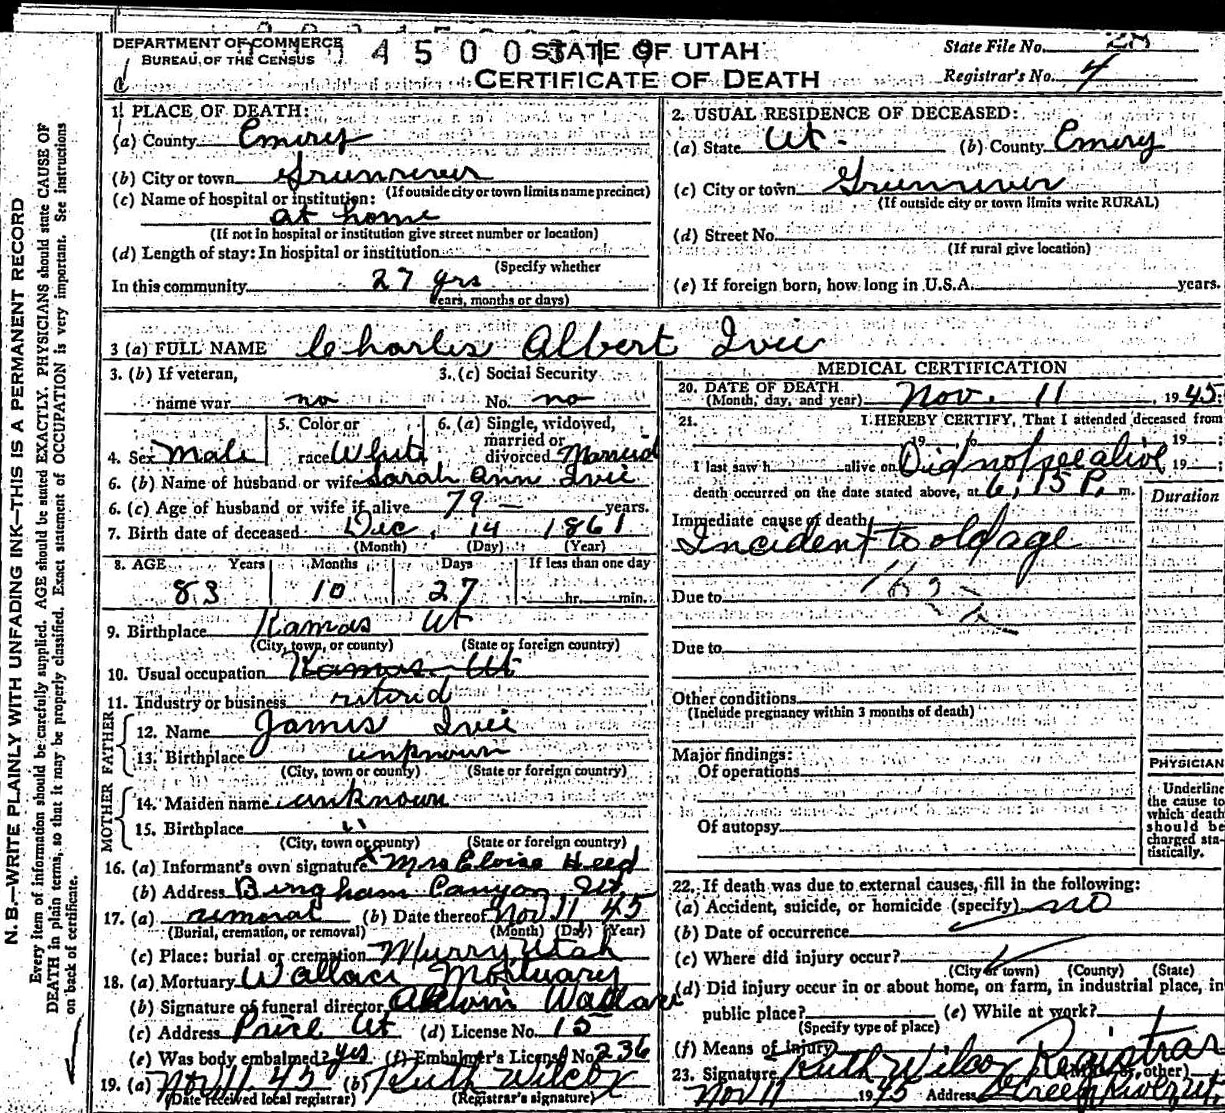 DEPARTMENT OF COMMERCE
BUREAU OF THE CENSUS
4 5 0 0 3 1 9
STATE OF UTAH
CERTIFICATE OF DEATH
State File No. 28
Registrar's No. 4
N. B.—WRITE PLAINLY WITH UNFADING INK—THIS IS A PERMANENT RECORD
Every item of information should be carefully supplied. AGE should be stated EXACTLY. PHYSICIANS should state CAUSE OF
DEATH in plain terms, so that it may be properly classified. Exact statement of OCCUPATION is very important. See instructions
on back of certificate.
1. PLACE OF DEATH:
(a) County Emery
(b) City or town Greenriver
(If outside city or town limits name precinct)
(c) Name of hospital or institution:
at home
(If not in hospital or institution give street number or location)
(d) Length of stay: In hospital or institution
(Specify whether
In this community 27 yrs
years, months or days)
2. USUAL RESIDENCE OF DECEASED:
(a) State Ut. (b) County Emery
(c) City or town Greenriver
(If outside city or town limits write RURAL)
(d) Street No.
(If rural give location)
(e) If foreign born, how long in U.S.A. years.
3 (a) FULL NAME Charles Albert Ivie
3. (b) If veteran,
name war no
3. (c) Social Security
No. no
4. Sex Male
5. Color or
race White
6. (a) Single, widowed,
married or
divorced Married
6. (b) Name of husband or wife Sarah Ann Ivie
6. (c) Age of husband or wife if alive 79 years.
7. Birth date of deceased Dec. 14 1861
(Month) (Day) (Year)
8. AGE Years Months Days If less than one day
83 10 27 hr. min.
9. Birthplace Kamas Ut
(City, town, or county) (State or foreign country)
10. Usual occupation Kamas Ut
11. Industry or business retired
FATHER
12. Name James Ivie
13. Birthplace unknown
(City, town or county) (State or foreign country)
MOTHER
14. Maiden name unknown
15. Birthplace "
(City, town or county) (State or foreign country)
16. (a) Informant's own signature x Mrs Eloise Heed
(b) Address Bingham Canyon Ut
17. (a) removal (b) Date thereof Nov 11, 45
(Burial, cremation, or removal) (Month) (Day) (Year)
(c) Place: burial or cremation Murry Utah
18. (a) Mortuary Wallace Mortuary
(b) Signature of funeral director Wallace
(c) Address Price Ut (d) License No. 15
(e) Was body embalmed? yes (f) Embalmer's License No. 236
19. (a) Nov 11 45 (b) Ruth Wilcox
(Date received local registrar) (Registrar's signature)
MEDICAL CERTIFICATION
20. DATE OF DEATH
(Month, day, and year) Nov. 11, 1945;
21. I HEREBY CERTIFY, That I attended deceased from
19 to 19 ;
I last saw h alive on Did not see alive 19 ;
death occurred on the date stated above, at 6,15 P. m.
Duration
Immediate cause of death
Incident to old age
162
Due to
Due to
Other conditions
(Include pregnancy within 3 months of death)
Major findings:
Of operations
Of autopsy
PHYSICIAN
Underline
the cause to
which death
should be
charged sta-
tistically.
22. If death was due to external causes, fill in the following:
(a) Accident, suicide, or homicide (specify) no
(b) Date of occurrence
(c) Where did injury occur?
(City or town) (County) (State)
(d) Did injury occur in or about home, on farm, in industrial place, in
public place? (e) While at work?
(Specify type of place)
(f) Means of injury
23. Signature Ruth Wilcox Registrar
or other)
Nov 11 1945 Address Green River Ut.